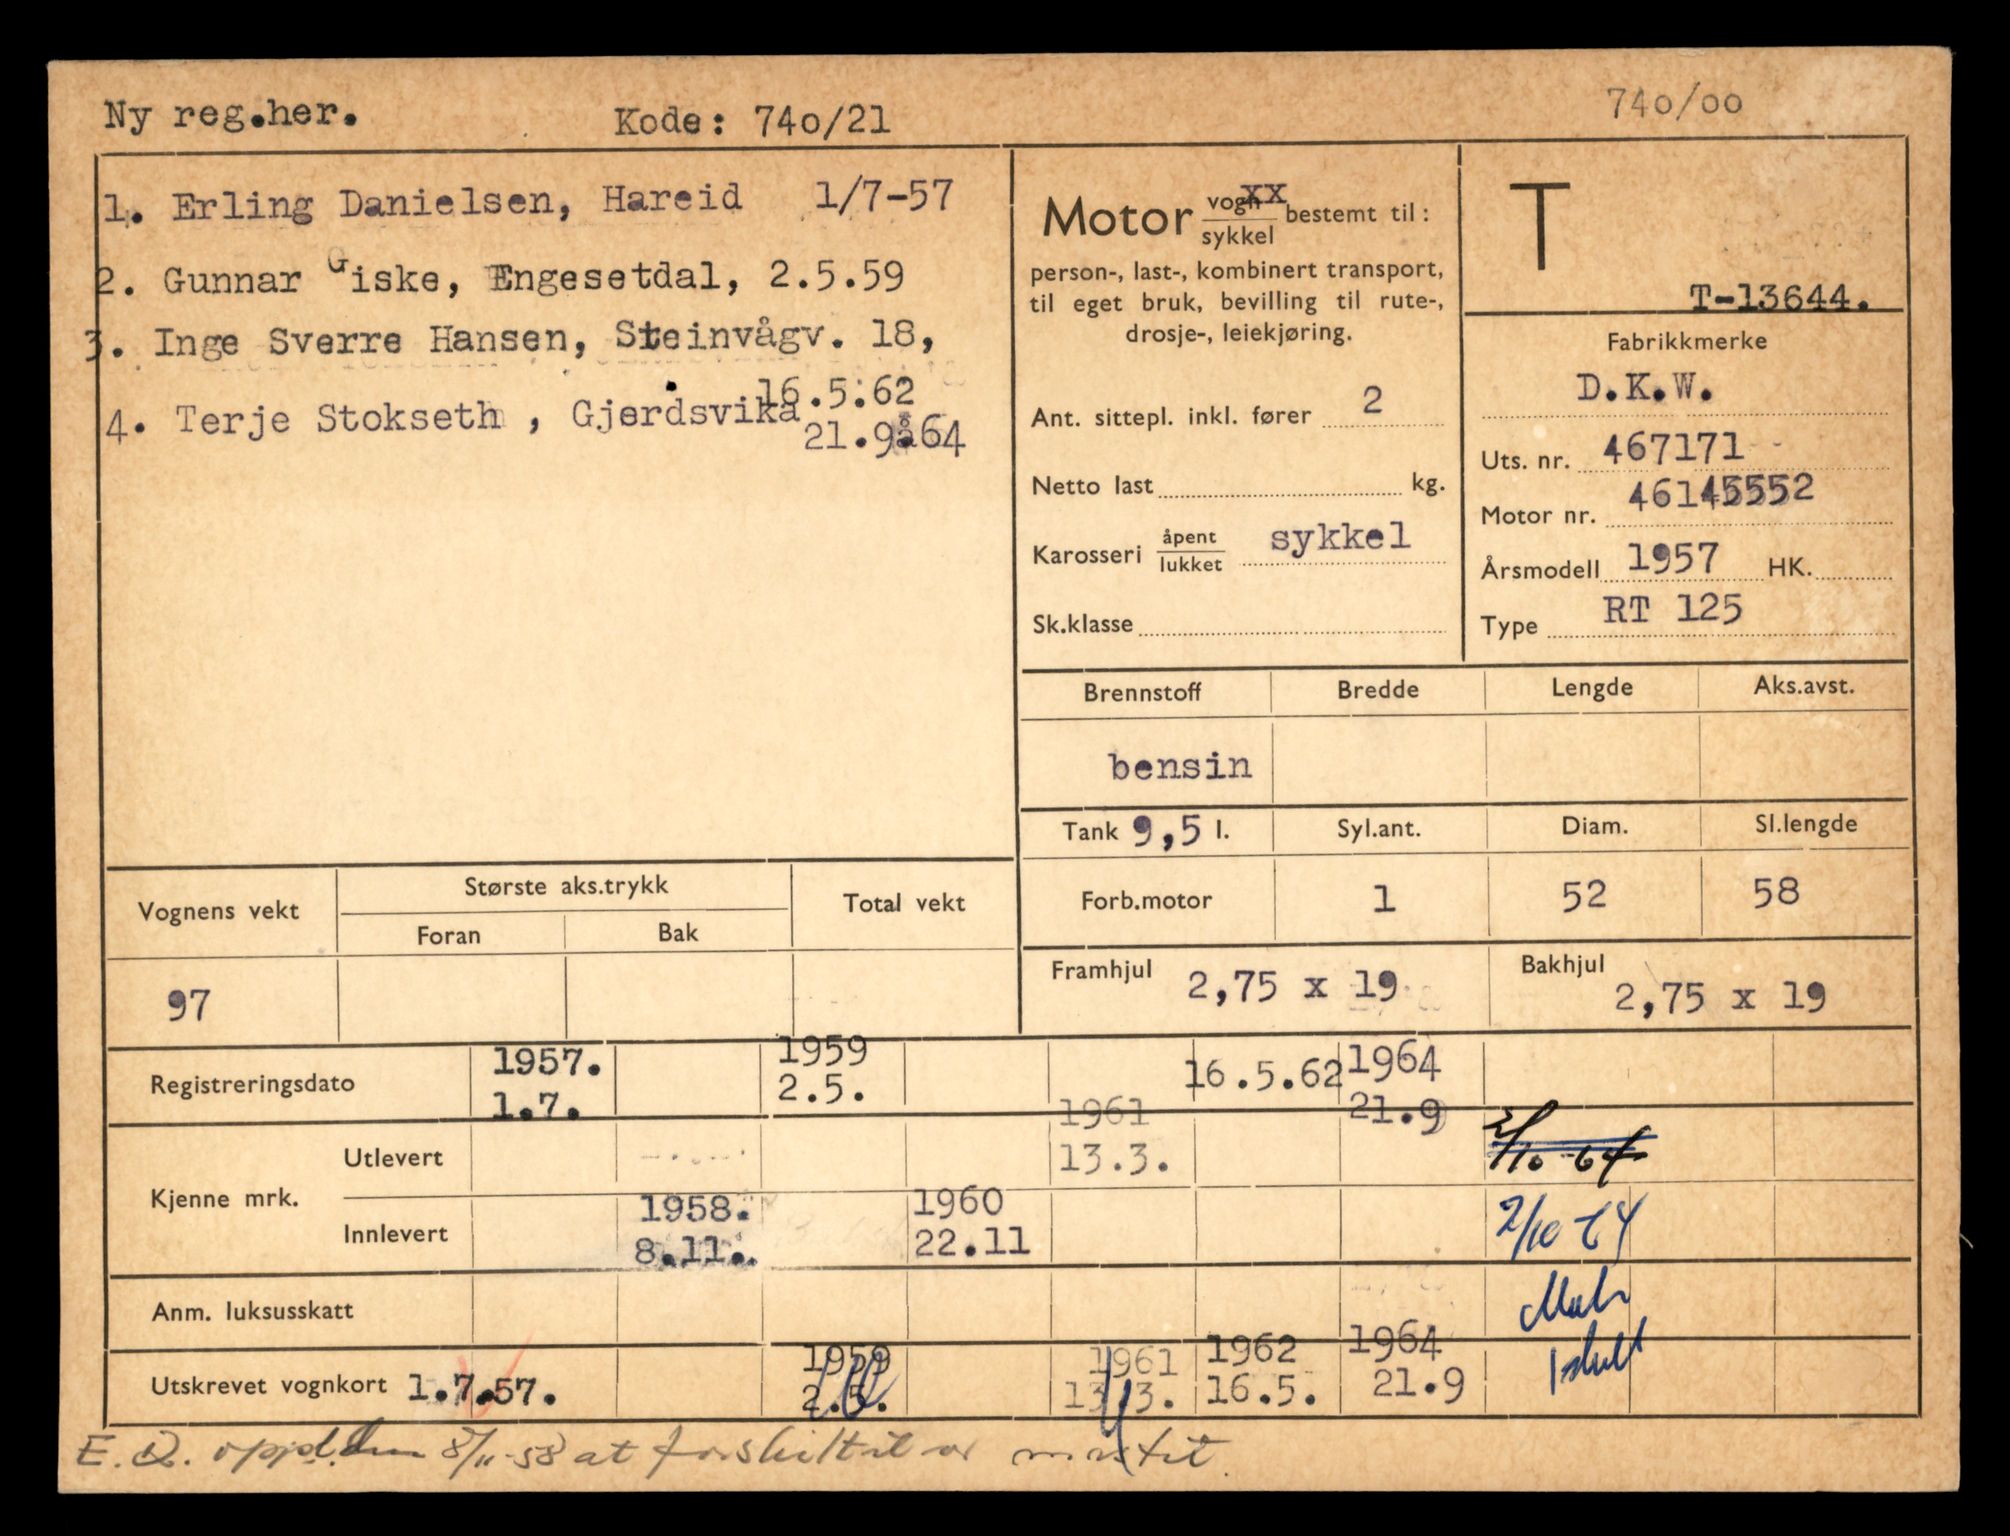 Ny reg.her.
Kode: 740/21
740/00
1. Erling Danielsen, Hareid 1/7-57
2. Gunnar Giske, Engesetdal, 2.5.59
3. Inge Sverre Hansen, Steinvågv. 18,
16.5.62
4. Terje Stokseth , Gjerdsvika
21.9.64
Motor vogn xx bestemt til :
sykkel
person-, last-, kombinert transport,
til eget bruk, bevilling til rute-,
drosje-, leiekjøring.
Ant. sittepl. inkl. fører 2
Netto last kg.
Karosseri åpent sykkel
lukket
Sk.klasse
T
T-13644.
Fabrikkmerke
D.K.W.
Uts. nr. 467171
Motor nr. 46145552
Årsmodell 1957 HK.
Type RT 125
Brennstoff Bredde Lengde Aks.avst.
bensin
Tank 9,5 l. Syl.ant. Diam. Sl.lengde
Forb.motor 1 52 58
Framhjul 2,75 x 19 Bakhjul 2,75 x 19
Vognens vekt Største aks.trykk Total vekt
Foran Bak
97
Registreringsdato 1957. 1959 16.5.62 1964
1.7. 2.5. 21.9
Kjenne mrk.
Utlevert 1961 2/10-64
13.3.
Innlevert 1958. 1960 2/10 64
8.11. 22.11
Anm. luksusskatt
Utskrevet vognkort 1.7.57. 1959 1961 1962 1964 1 skilt
2.5. 13.3. 16.5. 21.9
E. D. 8/11-58 at